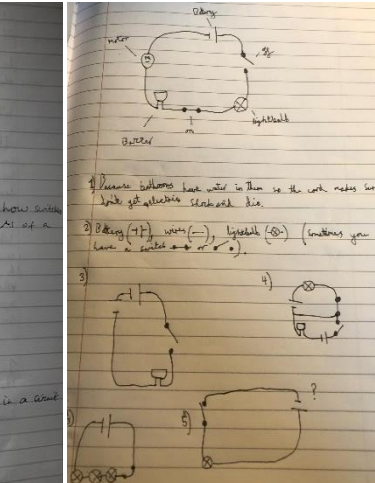 how switches
of a
is a circuit
Battery
motor
off
lightbulb
on
Buzzer
1) Because bathrooms have water in them so the cord makes sure
don't get electric shock and die.
2) Battery (), wires (), lightbulb () (sometimes you
have a switch or ).
3)
4)
5)
?